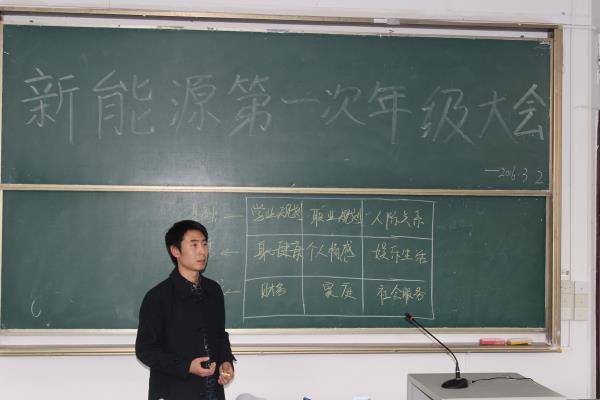 新能源第一次年级大会
—2016.3.2
学业规划 职业规划 人际关系
身心健康 个人情感 娱乐生活
财务 家庭 社会服务